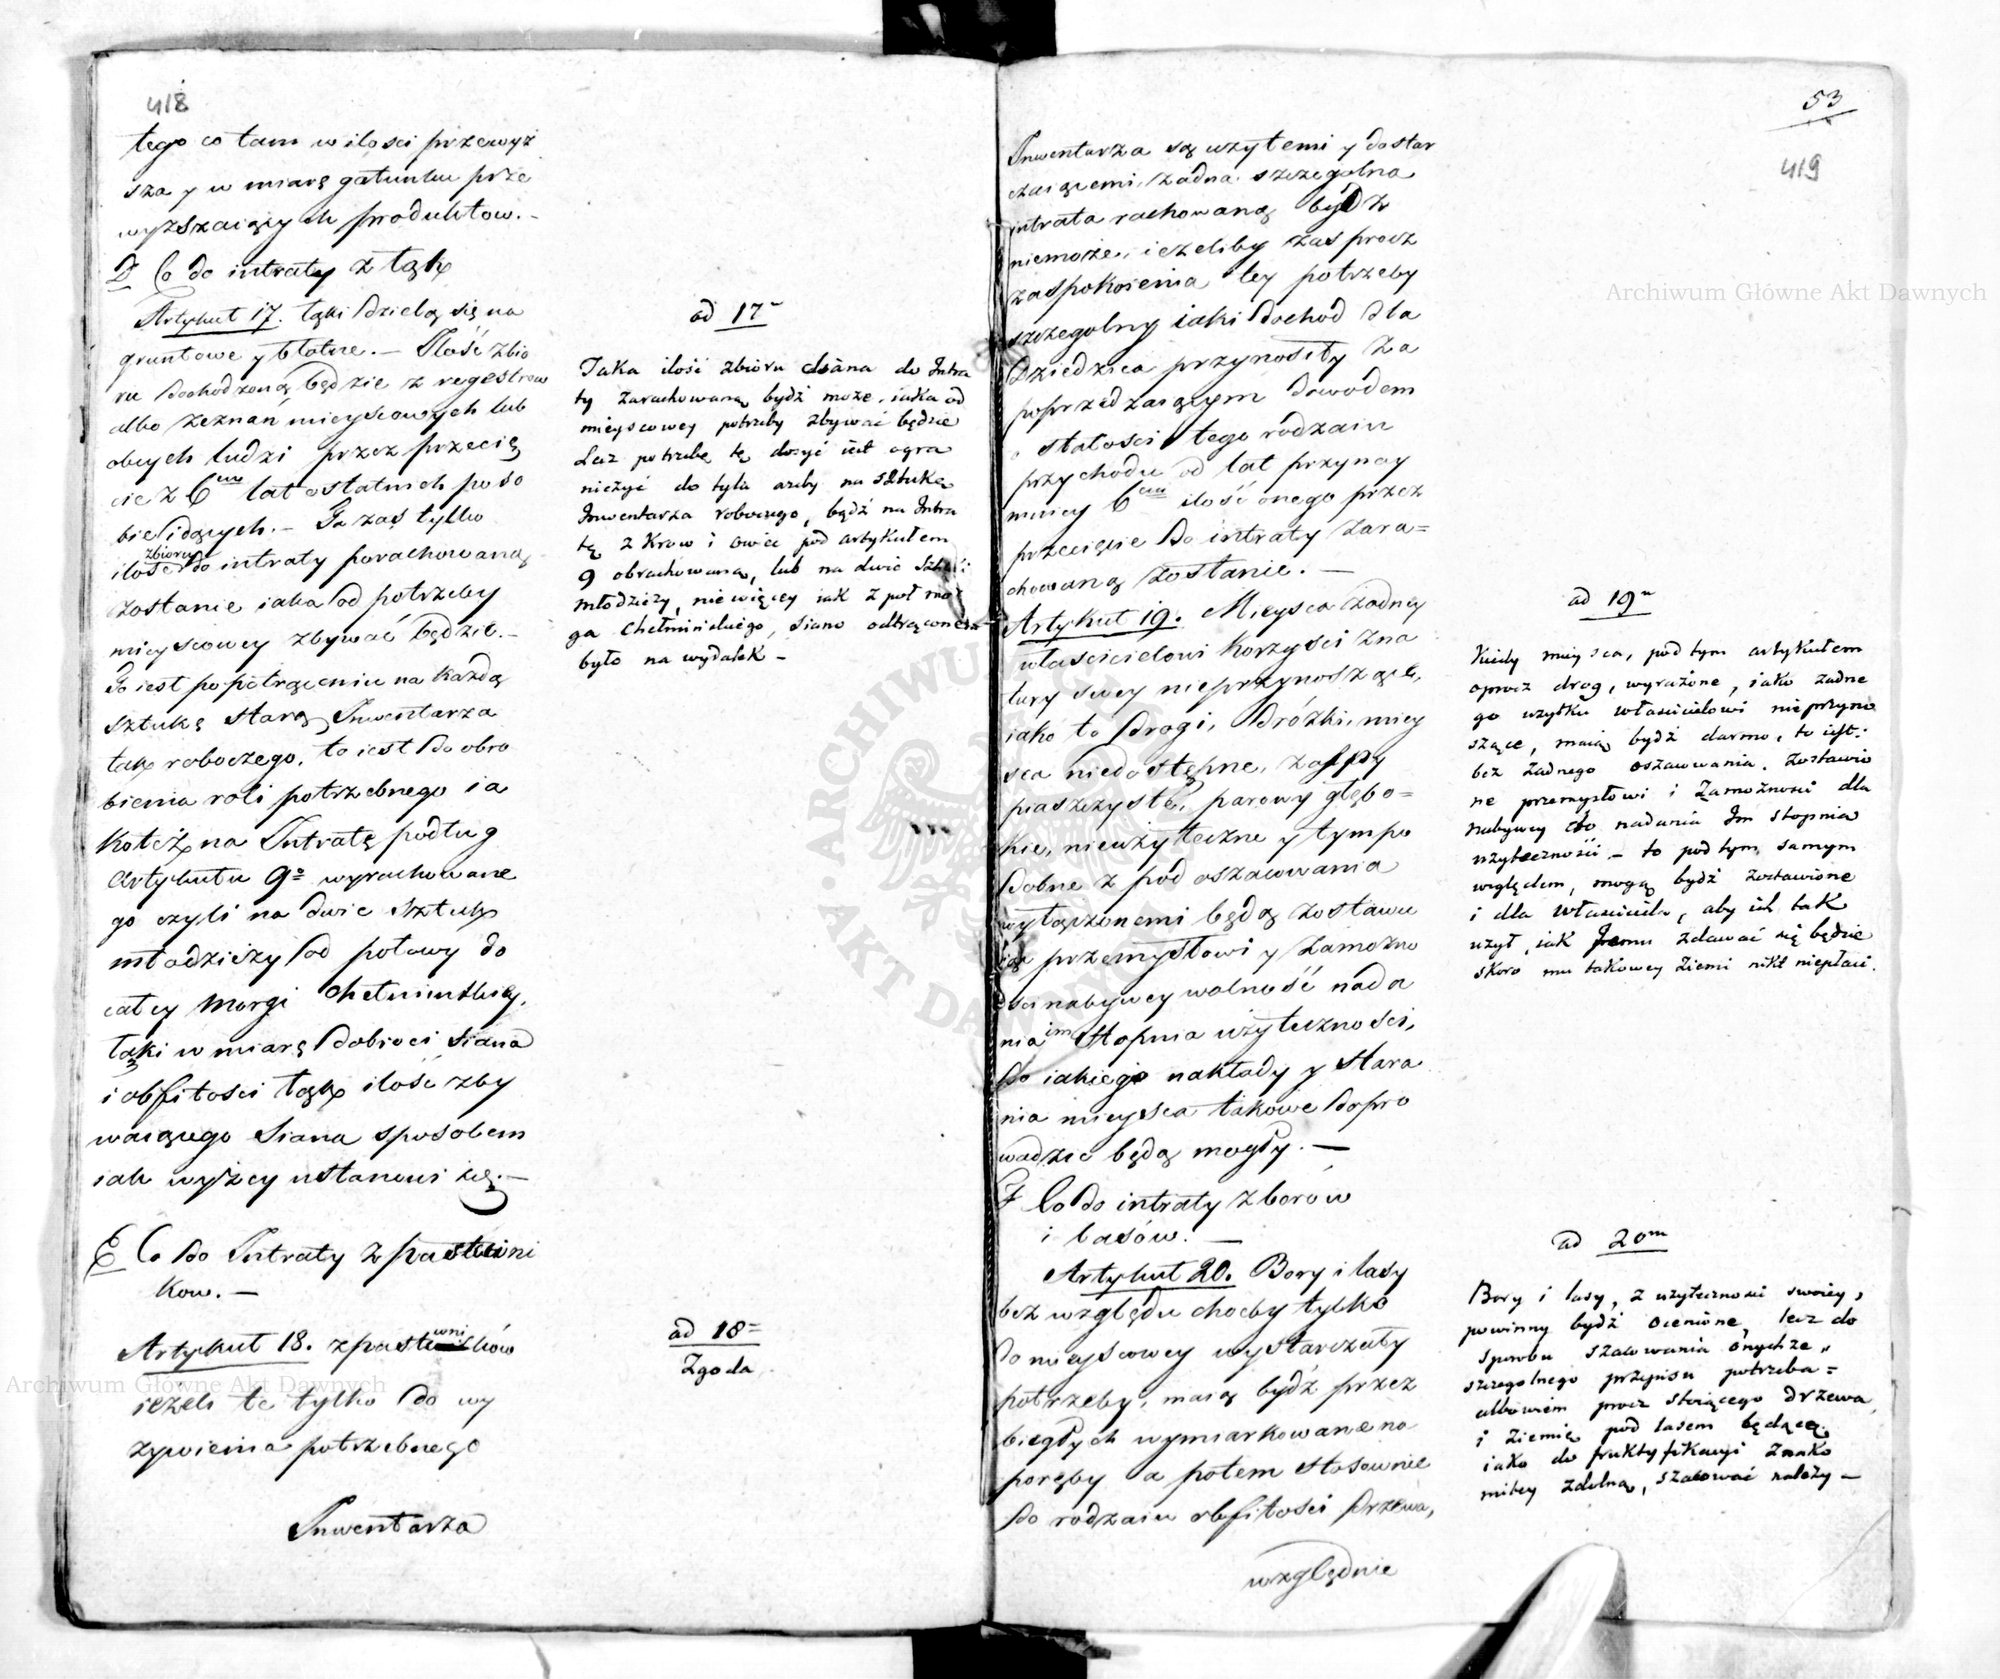 418
tego co tam w ilości przewyż
sza y w miarę gatunku prze
wyższaiących produktow. -
D Co do intraty z łąk
Artykuł 17. łąki dzielą się na
gruntowe y błotne. - Ilość zbio
ru dochodzoną będzie z regestrow
albo zeznań mieyscowych lub
obcych ludzi przez przecię
cie z 6ciu lat ostatnich po so
bie idących. - Ta zaś tylko
ilość zbioru do intraty porachowaną
zostanie iaka od potrzeby
mieyscowey zbywać będzie. -
To iest po potrąceniu na każdą
sztukę starą Inwentarza
tak roboczego, to iest do obro
bienia roli potrzebnego ia
koteż na Intratę podług
Artykułu 9o wyrachowane
go czyli na dwie sztuk
młodzieży od połowy do
całey Morgi Chełmińskiey,
łąki w miarę dobroci siana
i obfitości łąk ilość zby
waiącego Siana sposobem
iak wyżey ustanowi się. -
E Co do Intraty z pastwi
kow. -
Artykuł 18. z pastwnikòw
ieżeli te tylko do wy
żywienia potrzebnego
Inwentarza
ad 17m
Taka ilość zbioru siana do Intra
ty zarachowaną bydź może, iaka od
mieyscowey potrzeby zbywać będzie
Lecz potrzebę tę dosyć iest ogra
niczyć do tyla ażeby na sztukę
Inwentarza roboczego, bądź na Intra
tę z Krow i owiec pod artykułem
9 obrachowaną, lub na dwie sztuki
młodzieży, nie więcey iak z pół mor
ga Chełmińskiego, siano odtrącone
było na wydatek -
ad 18m
Zgoda
53
419
Inwentarza są użytemi y dostar
czaiącemi, żadna szczegolna
intrata rachowaną bydź
niemoże, ieżeliby zaś procz
zaspokoienia tey potrzeby
szczegolny iaki dochod dla
Dziedzica przynosiły za
poprzedzaiącym dowodem
o stałości tego rodzaiu
przychodu od lat przynay
mniey 6ciu ilość onego przez
przecięcie do intraty zara=
chowaną zostanie. -
Artykuł 19. Mieysca żadney
właścicielowi korzyści z na
tury swey nieprzynoszące,
iako to Drogi, Dróżki, miey
sca niedostępne, zaspy
piaszczyste, parowy głębo=
kie, nieużyteczne y tym po
dobne z pod oszacowania
wyłączonemi będą zostawu
iąc przemysłowi y zamożno
ści nabywcy wolność nada
nia im stopnia użyteczności,
do iakiego nakłady y stara
nia mieysca takowe dopro
wadzić będą mogły. -
F Co do intraty z borów
i lasów. -
Artykuł 20. Bory i lasy
bez względu choćby tylko
do mieyscowey wystarczały
potrzeby, maią bydź przez
biegłych wymiarkowane na
poręby a potem stosownie
do rodzaiu obfitości drzewa,
względnie
ad 19m
Kiedy mieysca, pod tym artykułem
oprocz drog, wyrażone, iako żadne
go użytku właścicielowi nieprzyno
szące, maią bydź darmo, to iest:
bez żadnego oszacowania, zostawio
ne przemysłowi i Zamożności dla
nabywcy do nadania Im stopnia
użyteczności - to pod tym samym
względem, mogą bydź zostawione
i dla właściciela, aby ich tak
użył, iak Jemu zdawać się będzie
skoro mu takowey ziemi nikt niepłaci.
ad 20m
Bory i lasy, z użyteczności swoiey,
powinny bydź ocenione, lecz do
sposobu szacowania onychże "
szczegolnego przepisu potrzeba=
albowiem procz stoiącego drzewa,
i ziemię pod lasem będącą,
iako do fruktyfikacyi znako
mitey zdolną, szacować należy -
Archiwum Główne Akt Dawnych
Archiwum Główne Akt Dawnych